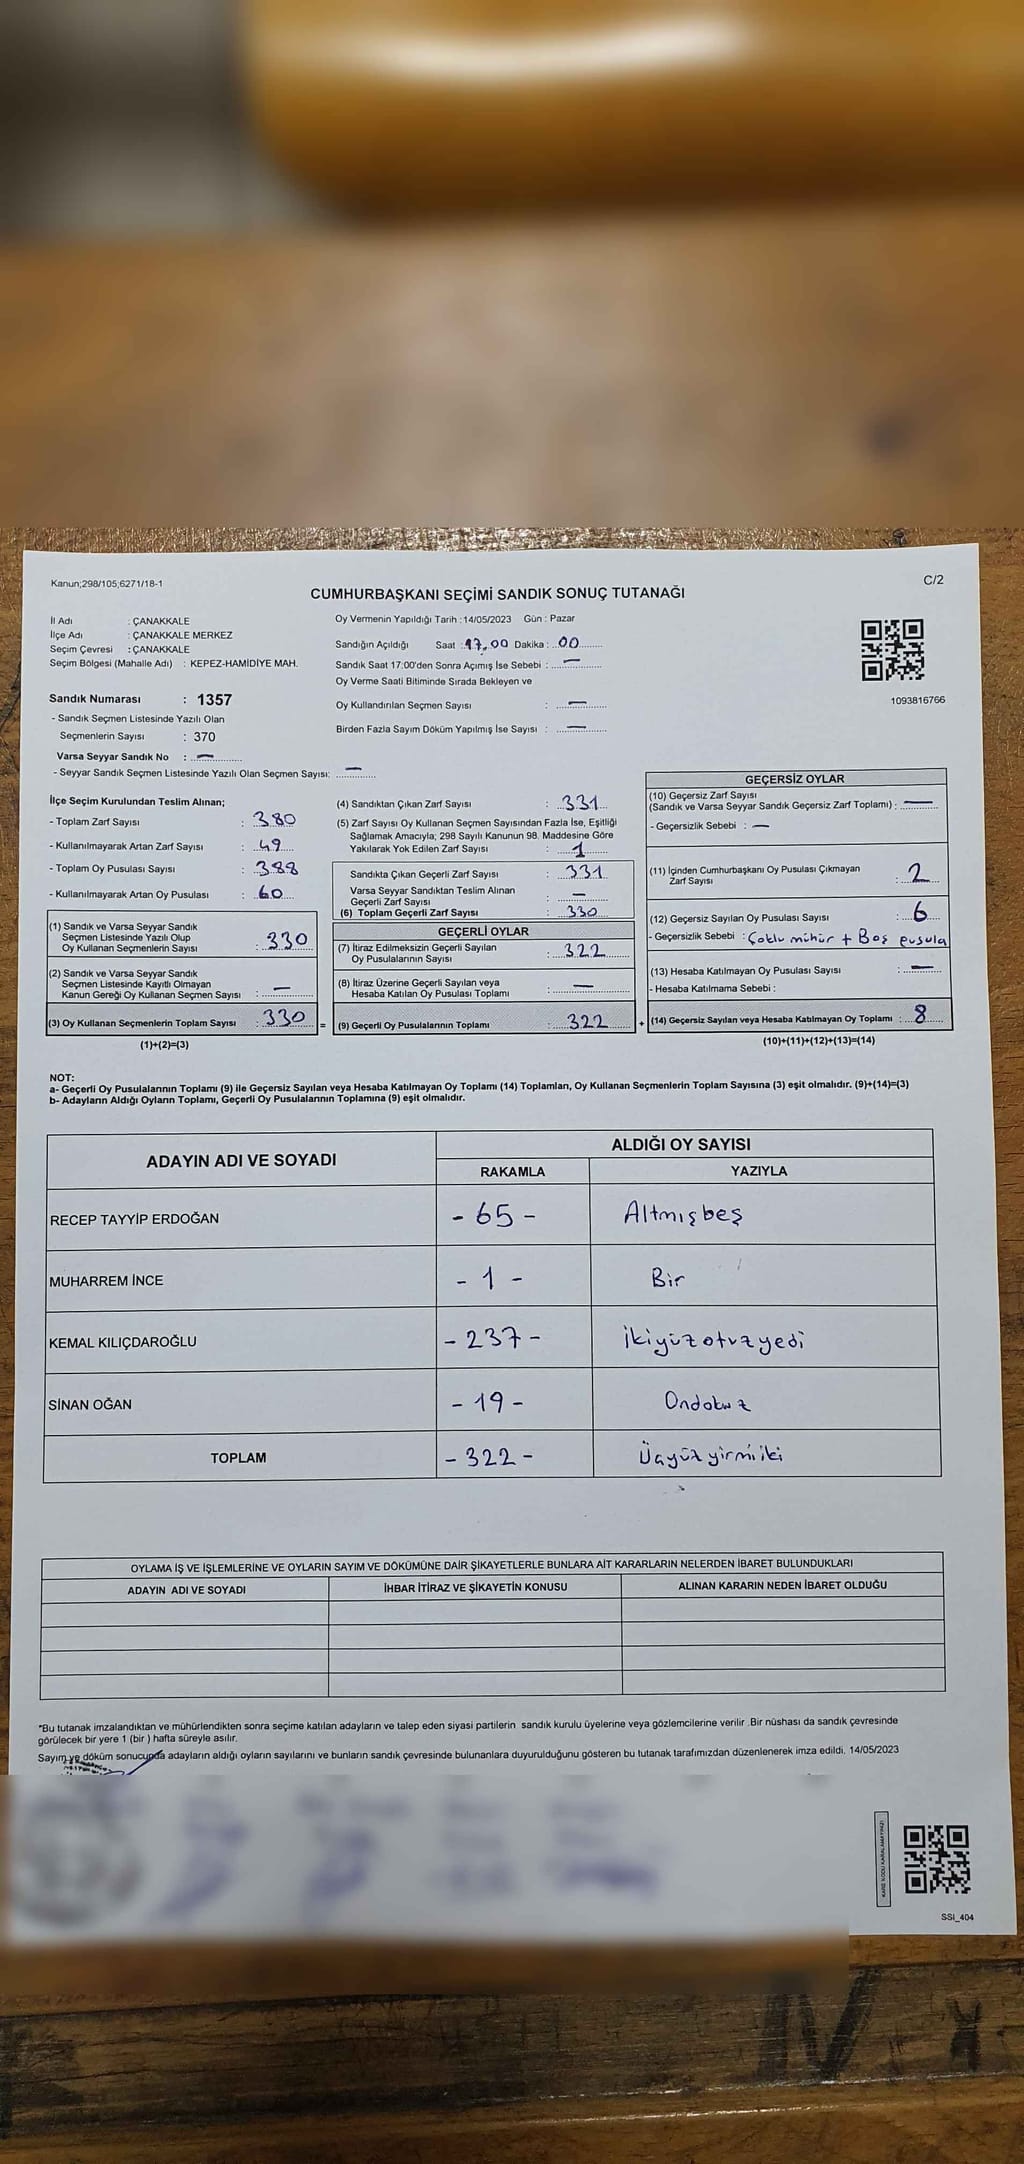 Kanun;298/105;6271/18-1
C/2
CUMHURBAŞKANI SEÇİMİ SANDIK SONUÇ TUTANAĞI
İl Adı : ÇANAKKALE
İlçe Adı : ÇANAKKALE MERKEZ
Seçim Çevresi : ÇANAKKALE
Seçim Bölgesi (Mahalle Adı) : KEPEZ-HAMİDİYE MAH.
Oy Vermenin Yapıldığı Tarih : 14/05/2023 Gün : Pazar
Sandığın Açıldığı Saat : 17.00 Dakika : 00
Sandık Saat 17:00'den Sonra Açımış İse Sebebi : —
Oy Verme Saati Bitiminde Sırada Bekleyen ve
Oy Kullandırılan Seçmen Sayısı : —
Birden Fazla Sayım Döküm Yapılmış İse Sayısı : —
1093816766
Sandık Numarası : 1357
- Sandık Seçmen Listesinde Yazılı Olan
Seçmenlerin Sayısı : 370
Varsa Seyyar Sandık No : —
- Seyyar Sandık Seçmen Listesinde Yazılı Olan Seçmen Sayısı: —
İlçe Seçim Kurulundan Teslim Alınan;
- Toplam Zarf Sayısı : 380
- Kullanılmayarak Artan Zarf Sayısı : 49
- Toplam Oy Pusulası Sayısı : 388
- Kullanılmayarak Artan Oy Pusulası : 60
(1) Sandık ve Varsa Seyyar Sandık
Seçmen Listesinde Yazılı Olup
Oy Kullanan Seçmenlerin Sayısı : 330
(2) Sandık ve Varsa Seyyar Sandık
Seçmen Listesinde Kayıtlı Olmayan
Kanun Gereği Oy Kullanan Seçmen Sayısı : —
(3) Oy Kullanan Seçmenlerin Toplam Sayısı : 330 =
(1)+(2)=(3)
(4) Sandıktan Çıkan Zarf Sayısı : 331
(5) Zarf Sayısı Oy Kullanan Seçmen Sayısından Fazla İse, Eşitliği
Sağlamak Amacıyla; 298 Sayılı Kanunun 98. Maddesine Göre
Yakılarak Yok Edilen Zarf Sayısı : 1
Sandıkta Çıkan Geçerli Zarf Sayısı : 331
Varsa Seyyar Sandıktan Teslim Alınan
Geçerli Zarf Sayısı : —
(6) Toplam Geçerli Zarf Sayısı : 330
GEÇERLİ OYLAR
(7) İtiraz Edilmeksizin Geçerli Sayılan
Oy Pusulalarının Sayısı : 322
(8) İtiraz Üzerine Geçerli Sayılan veya
Hesaba Katılan Oy Pusulası Toplamı : —
(9) Geçerli Oy Pusulalarının Toplamı : 322 +
GEÇERSİZ OYLAR
(10) Geçersiz Zarf Sayısı
(Sandık ve Varsa Seyyar Sandık Geçersiz Zarf Toplamı) : —
- Geçersizlik Sebebi : —
(11) İçinden Cumhurbaşkanı Oy Pusulası Çıkmayan
Zarf Sayısı : 2
(12) Geçersiz Sayılan Oy Pusulası Sayısı : 6
- Geçersizlik Sebebi : Çoklu mühür + Boş pusula
(13) Hesaba Katılmayan Oy Pusulası Sayısı : —
- Hesaba Katılmama Sebebi :
(14) Geçersiz Sayılan veya Hesaba Katılmayan Oy Toplamı : 8
(10)+(11)+(12)+(13)=(14)
NOT:
a- Geçerli Oy Pusulalarının Toplamı (9) ile Geçersiz Sayılan veya Hesaba Katılmayan Oy Toplamı (14) Toplamları, Oy Kullanan Seçmenlerin Toplam Sayısına (3) eşit olmalıdır. (9)+(14)=(3)
b- Adayların Aldığı Oyların Toplamı, Geçerli Oy Pusulalarının Toplamına (9) eşit olmalıdır.
ADAYIN ADI VE SOYADI
ALDIĞI OY SAYISI
RAKAMLA YAZIYLA
RECEP TAYYİP ERDOĞAN - 65 - Altmışbeş
MUHARREM İNCE - 1 - Bir
KEMAL KILIÇDAROĞLU - 237 - İkiyüzotuzyedi
SİNAN OĞAN - 19 - Ondokuz
TOPLAM - 322 - Üçyüzyirmiiki
OYLAMA İŞ VE İŞLEMLERİNE VE OYLARIN SAYIM VE DÖKÜMÜNE DAİR ŞİKAYETLERLE BUNLARA AİT KARARLARIN NELERDEN İBARET BULUNDUKLARI
ADAYIN ADI VE SOYADI İHBAR İTİRAZ VE ŞİKAYETİN KONUSU ALINAN KARARIN NEDEN İBARET OLDUĞU
*Bu tutanak imzalandıktan ve mühürlendikten sonra seçime katılan adayların ve talep eden siyasi partilerin sandık kurulu üyelerine veya gözlemcilerine verilir .Bir nüshası da sandık çevresinde
görülecek bir yere 1 (bir ) hafta süreyle asılır.
Sayım ve döküm sonucunda adayların aldığı oyların sayılarını ve bunların sandık çevresinde bulunanlara duyurulduğunu gösteren bu tutanak tarafımızdan düzenlenerek imza edildi. 14/05/2023
SSI_404